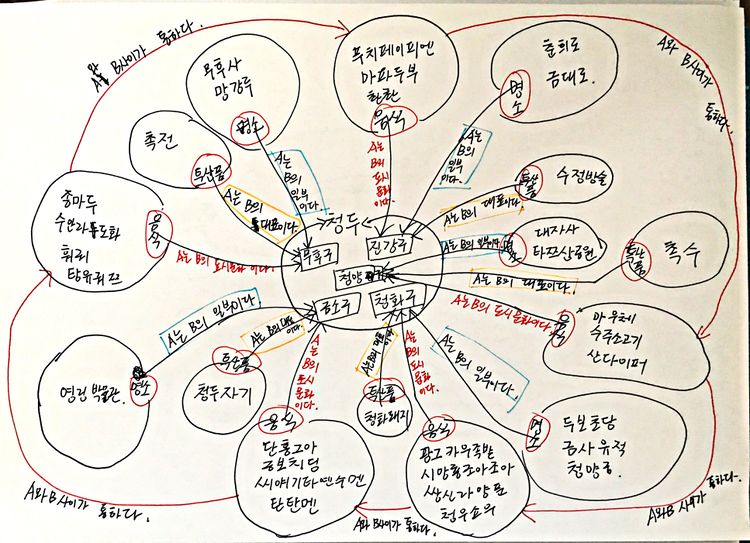 A와 B사이가 통하다.
무후사
망강루
명소
A는 B의 일부이다.
푸치페이피엔
마파두부
촨촨
음식
A는 B의 도시 문화이다.
춘희로
금대로.
명소
A는 B의 일부이다.
A와 B사이가 통하다.
촉전
특산품
A는 B의 대표이다.
수정방술
특산품
A는 B의 대표이다.
대자사
타쯔샹공원
명소
A는 B의 일부이다.
촉수
특산품
A는 B의 대표이다.
충마두
훠궈
탕유궈즈
음식
A는 B의 도시문화이다.
청두
무후구
진강구
청양구
금소구
청화구
A는 B의 도시문화이다.
음식
마우체
수주소고기
산다이퍼
영릉 박물관.
명소
A는 B의 일부이다.
청두자기
특산품
A는 B의 대표이다.
단홍고아
공보치딩
단단멘
음식
A는 B의 도시 문화이다.
청화돼지
특산품
음식
A는 B의 도시 문화이다.
두보초당
금사유적
청양궁.
명소
A는 B의 일부이다.
A와 B사이가 통하다.
A와 B사이가 통하다.
A와 B 사이가 통하다.